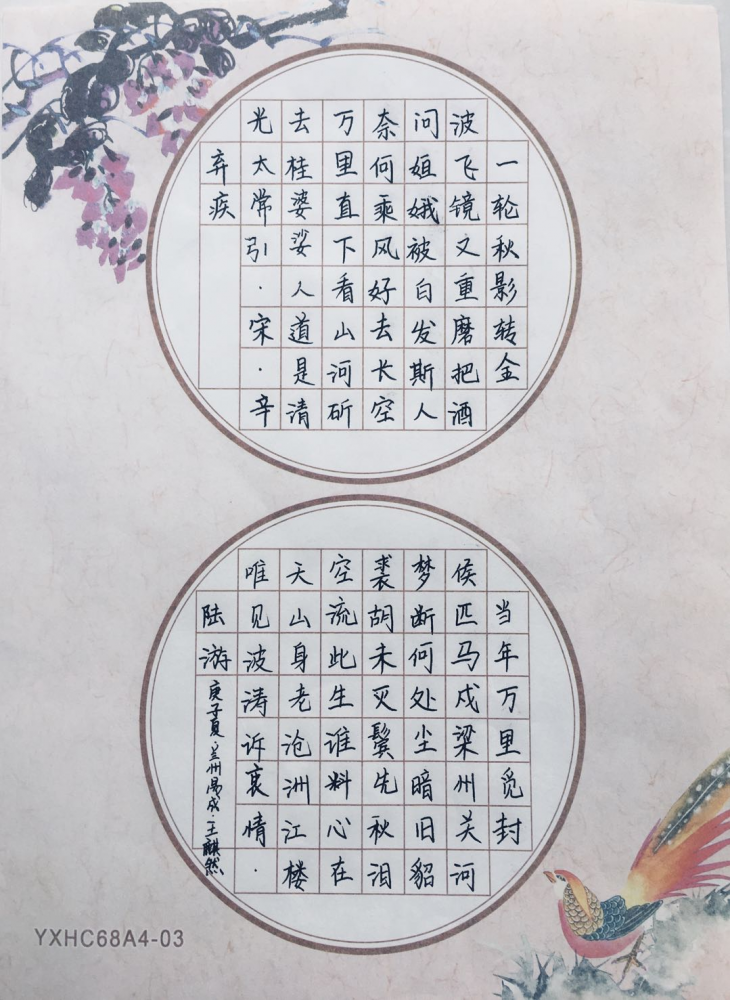 一轮秋影转金
波飞镜又重磨把酒
问姮娥被白发斯人
奈何乘风好去长空
万里直下看山河斫
去桂婆娑人道是清
光太常引·宋·辛
弃疾
当年万里觅封
侯匹马戍梁州关河
梦断何处尘暗旧貂
裘胡未灭鬓先秋泪
空流此生谁料心在
天山身老沧洲江楼
唯见波涛诉衷情·
陆游
庚子夏·兰州 成·王麒然
YXHC68A4-03